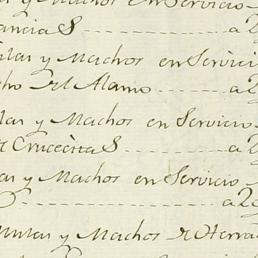 y Machos en Servicio
ancia S a 2
ulas y Machos en Servici
cho del Alamo a 2
las y Machos en Servicio
Crucecita S a 2
as y Machos en Servicio
a 2
Mulas y Machos